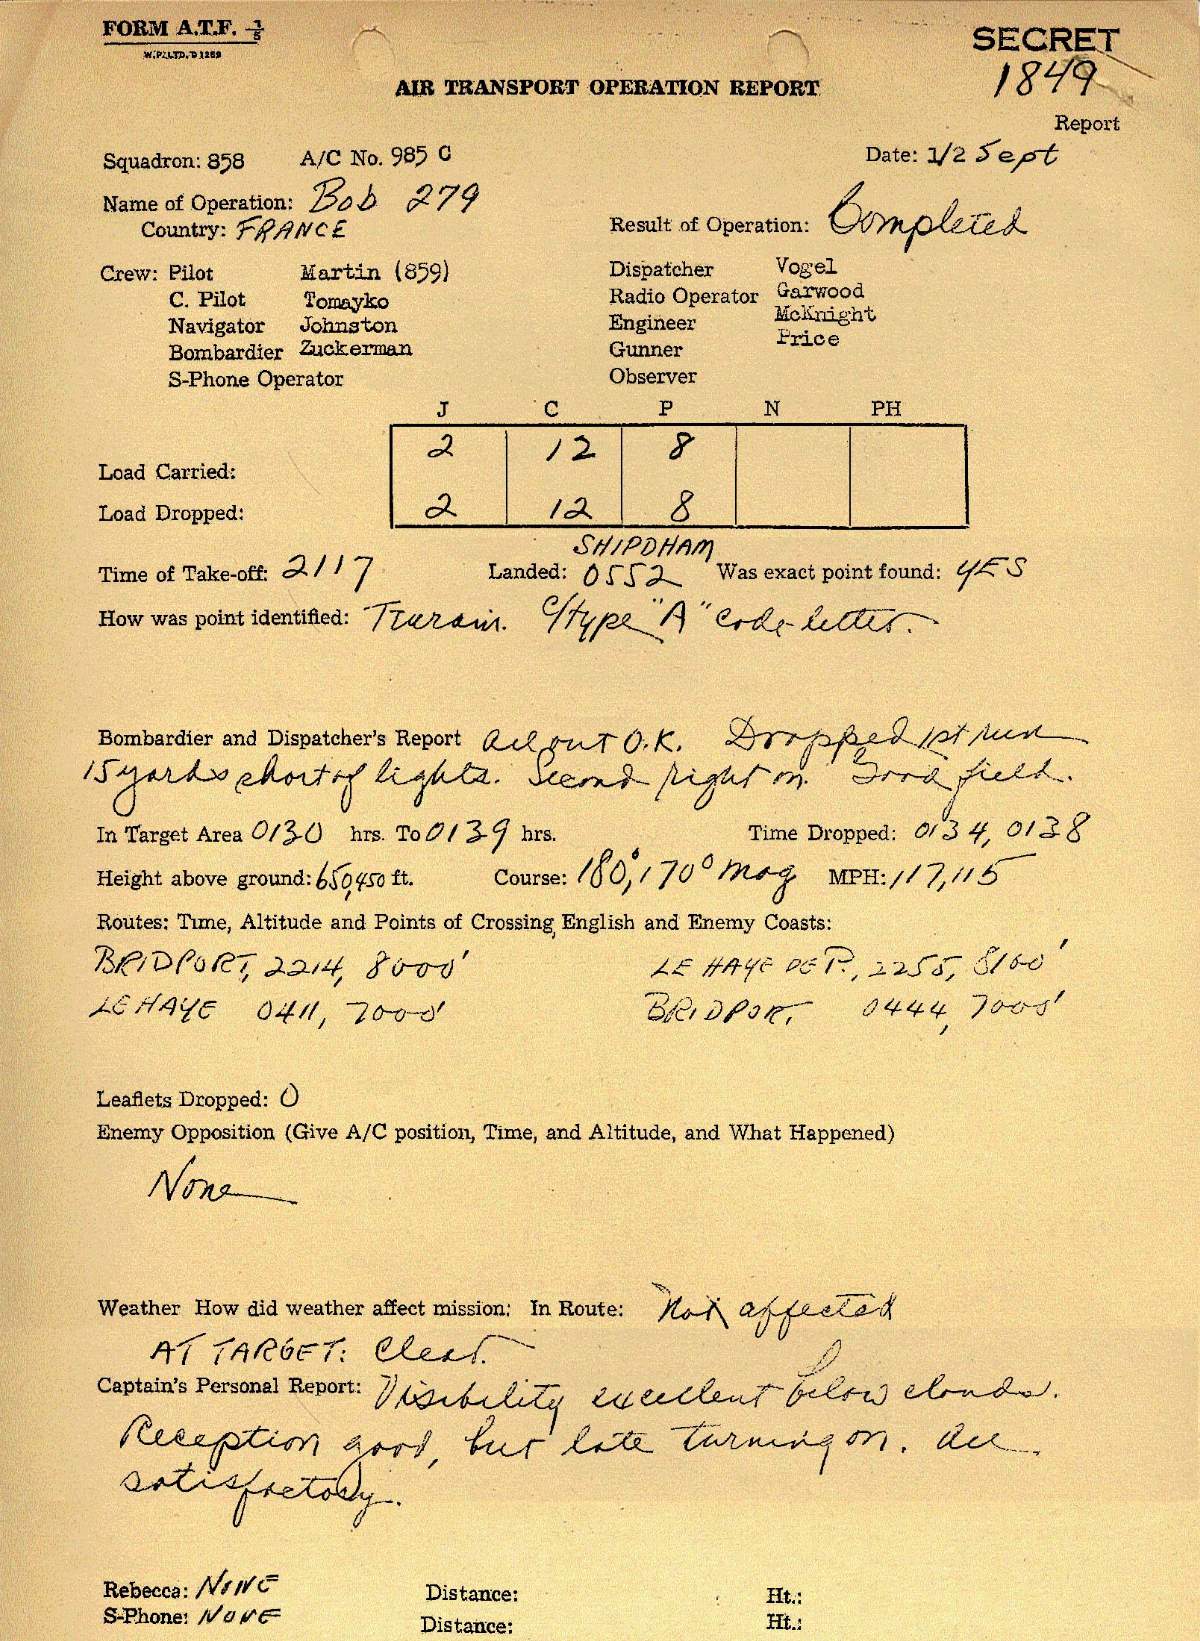 FORM A.T.F. 1/5
SECRET
W.P. LTD. D 1289
1849
AIR TRANSPORT OPERATION REPORT
Report
Squadron: 858 A/C No. 985 C Date: 1/2 Sept
Name of Operation: Bob 279
Country: FRANCE Result of Operation: Completed
Crew: Pilot Martin (859) Dispatcher Vogel
C. Pilot Tomayko Radio Operator Garwood
Navigator Johnston Engineer McKnight
Bombardier Zuckerman Gunner Price
S-Phone Operator Observer
J C P N PH
Load Carried: 2 12 8
Load Dropped: 2 12 8
SHIPDHAM
Time of Take-off: 2117 Landed: 0552 Was exact point found: YES
How was point identified: Terrain. C/type "A" code letter.
Bombardier and Dispatcher's Report All out O.K. Dropped 1st run
15 yards short of lights. Second right on. Good field.
In Target Area 0130 hrs. To 0139 hrs. Time Dropped: 0134, 0138
Height above ground: 650,450 ft. Course: 180°, 170° mag MPH: 117,115
Routes: Time, Altitude and Points of Crossing English and Enemy Coasts:
BRIDPORT, 2214, 8000' LE HAYE DE P., 2255, 8100'
LE HAYE 0411, 7000' BRIDPORT, 0444, 7000'
Leaflets Dropped: 0
Enemy Opposition (Give A/C position, Time, and Altitude, and What Happened)
None
Weather How did weather affect mission: In Route: Not affected
AT TARGET: Clear.
Captain's Personal Report: Visibility excellent below clouds.
Reception good, but late turning on. All
satisfactory.
Rebecca: NONE Distance: Ht.:
S-Phone: NONE Distance: Ht.: